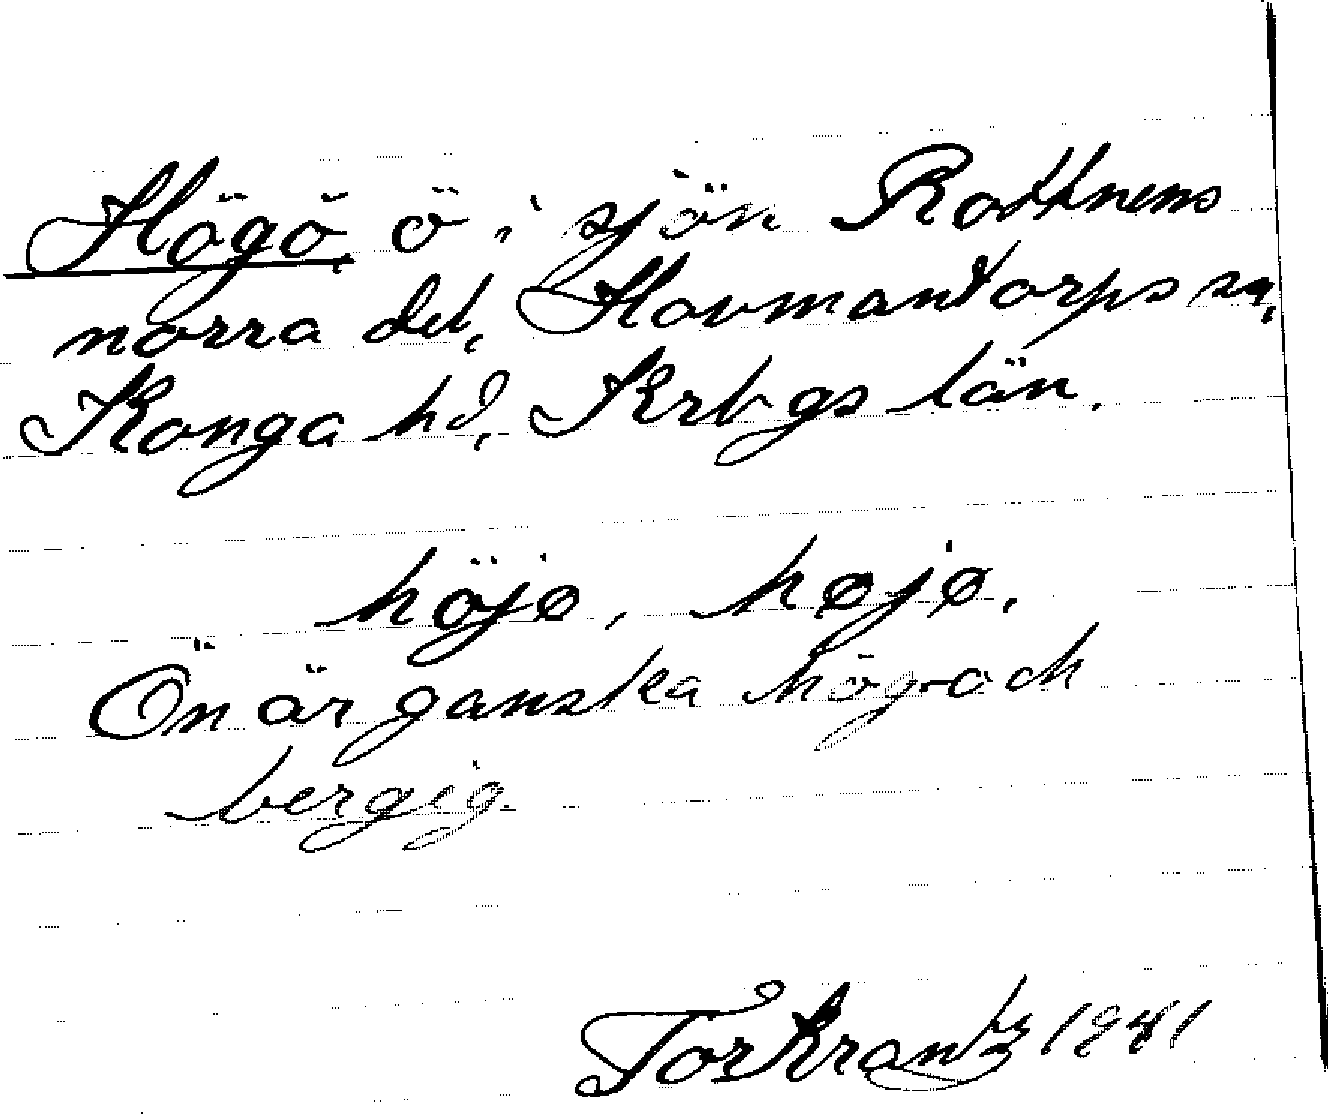 Högö, ö i sjön Rottnens
norra del, Hovmantorps sn,
Konga hd, Krbgs län.
höjö, højø.
Ön är ganska hög och
bergig.
Tor Krantz 1941